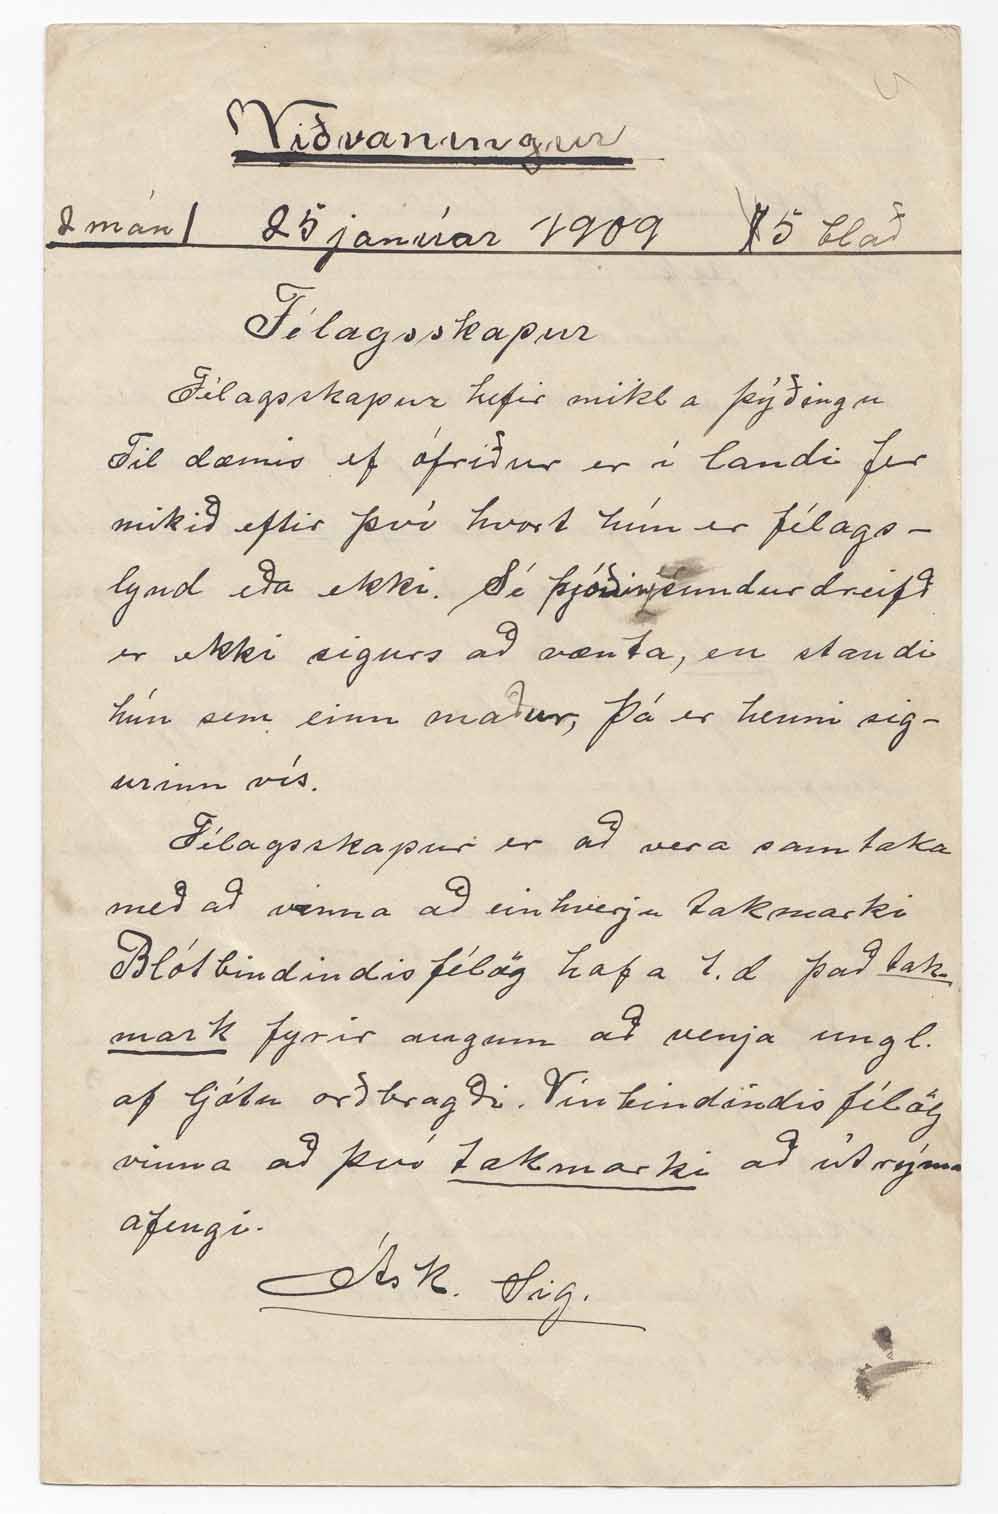 Viðvaningur
2 mán 25 janúar 1909 5 blað
Félagsskapur
Félagsskapur hefir mikla þýðingu
Til dæmis ef ófriður er í landi fer
mikið eftir því hvort hún er félags-
lynd eða ekki. Sé þjóðin sundurdreifð
er ekki sigurs að vænta, en standi
hún sem einn maður, þá er henni sig-
urinn vís.
Félagsskapur er að vera samtaka
með að vinna að einhverju takmarki
Blótbindindisfélög hafa t.d það tak-
mark fyrir augum að venja ungl.
af ljótu orðbragði. Vínbindindisfélög
vinna að því takmarki að útrýma
áfengi.
Ásk. Sig.